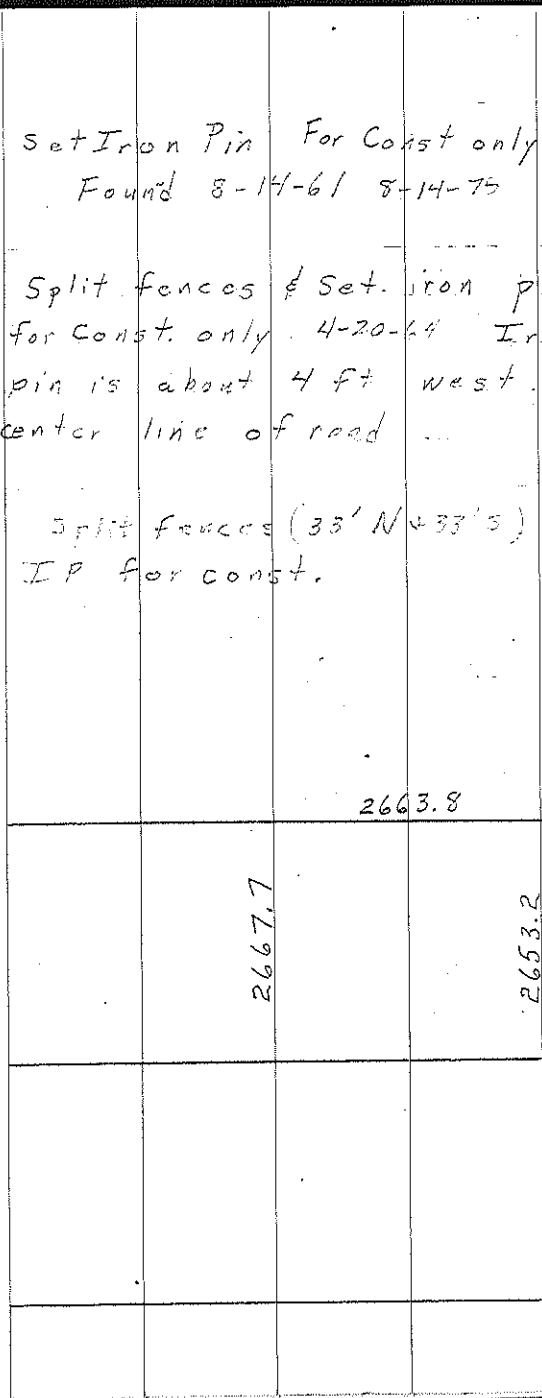 Set Iron Pin For Const only
Found 8-14-61 8-14-75
Split fences & Set. iron p
for Const. only. 4-20-64 Ir
pin is about 4 ft west.
center line of road
Split fences (33' N + 33' S)
IP for const.
2663.8
2667.7
2653.2